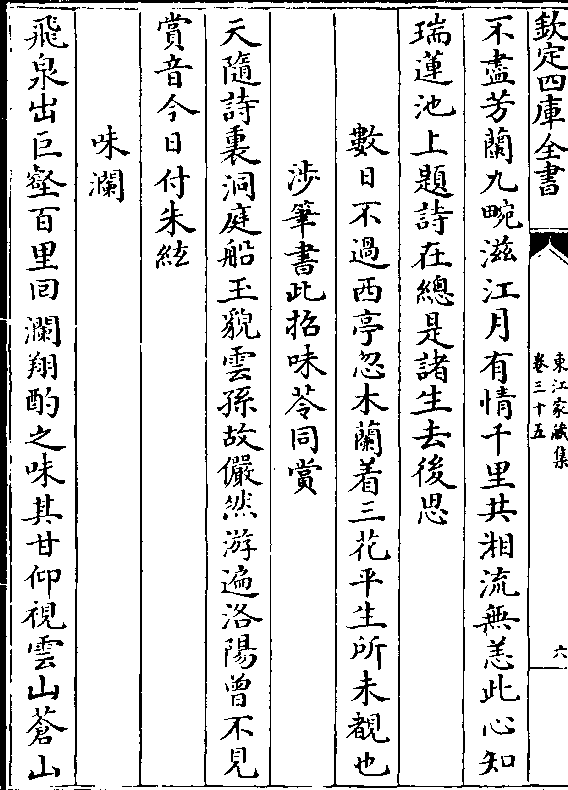 欽定四庫全書
東江家藏集
卷三十五
六
不盡芳蘭九畹滋江月有情千里共湘流無恙此心知
瑞蓮池上題詩在總是諸生去後思
數日不過西亭忽木蘭着三花平生所未覩也
涉筆書此招味芩同賞
天隨詩裏洞庭船玉貌雲孫故儼然游遍洛陽曾不見
賞音今日付朱絃
味瀾
飛泉出巨壑百里回瀾翔酌之味其甘仰視雲山蒼山